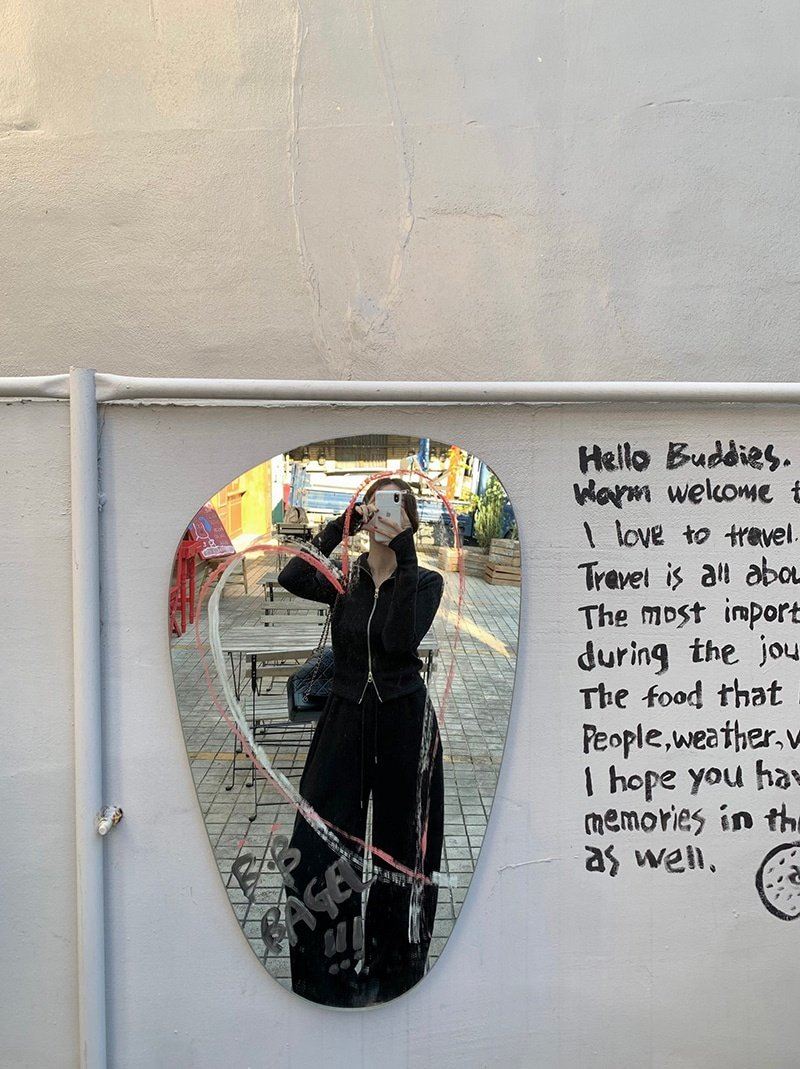 Hello Buddies.
Warm welcome t
I love to travel.
Travel is all abou
The most import
during the jou
The food that
People, weather, v
I hope you hav
memories in th
as well.
B.B
BAGEL
!!!